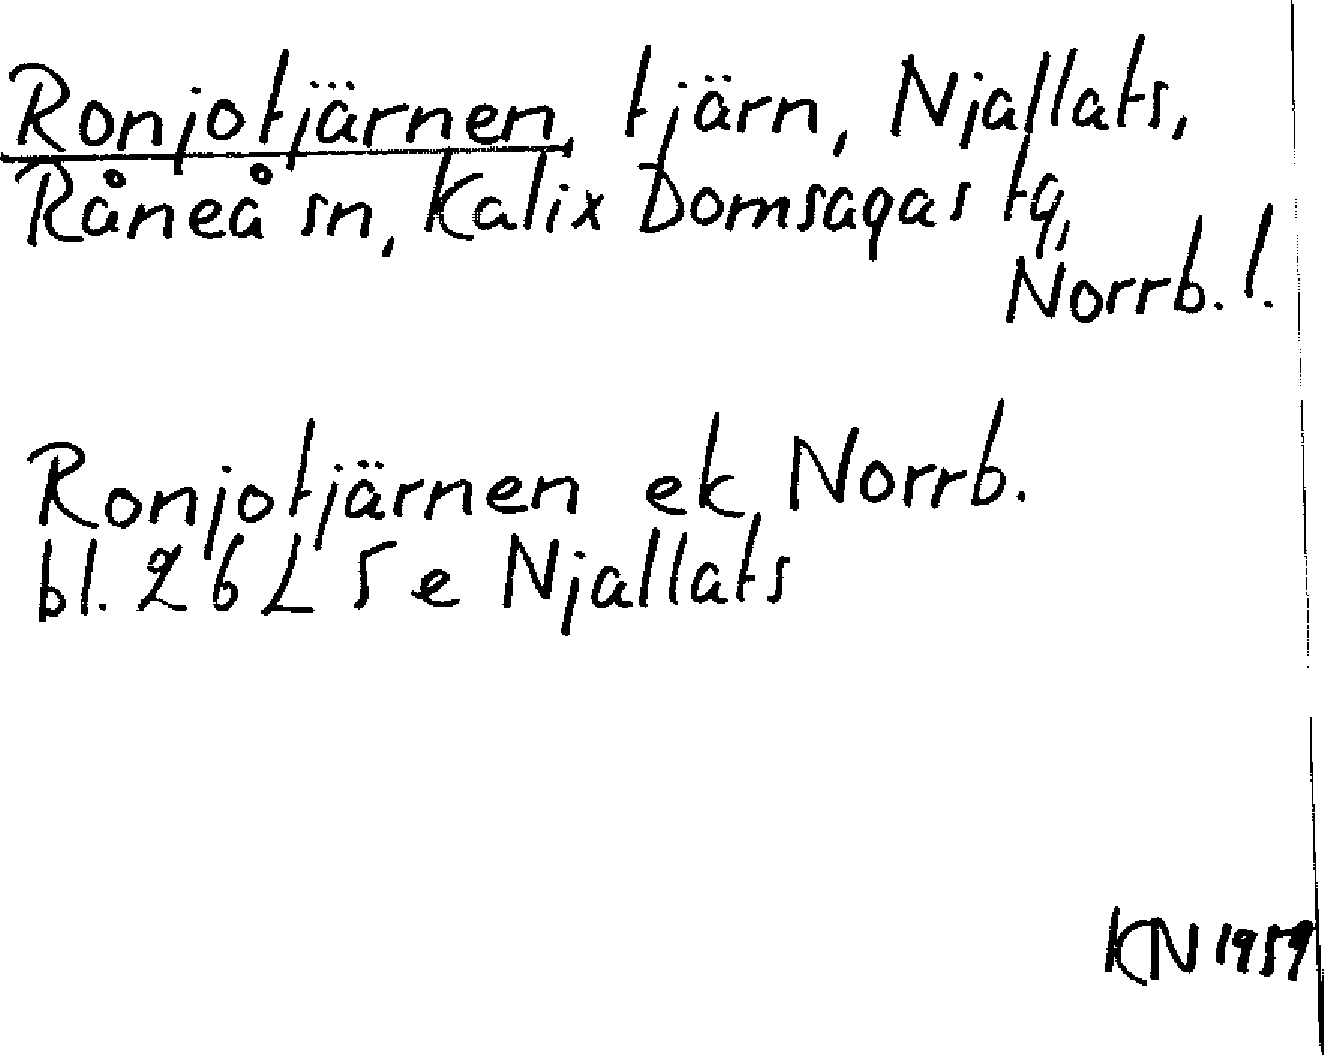 Ronjotjärnen, tjärn, Njallats,
Råneå sn, Kalix Domsagas tg,
Norrb. l.
Ronjotjärnen ek Norrb.
bl. 26 L 5 e Njallats
KN 1959